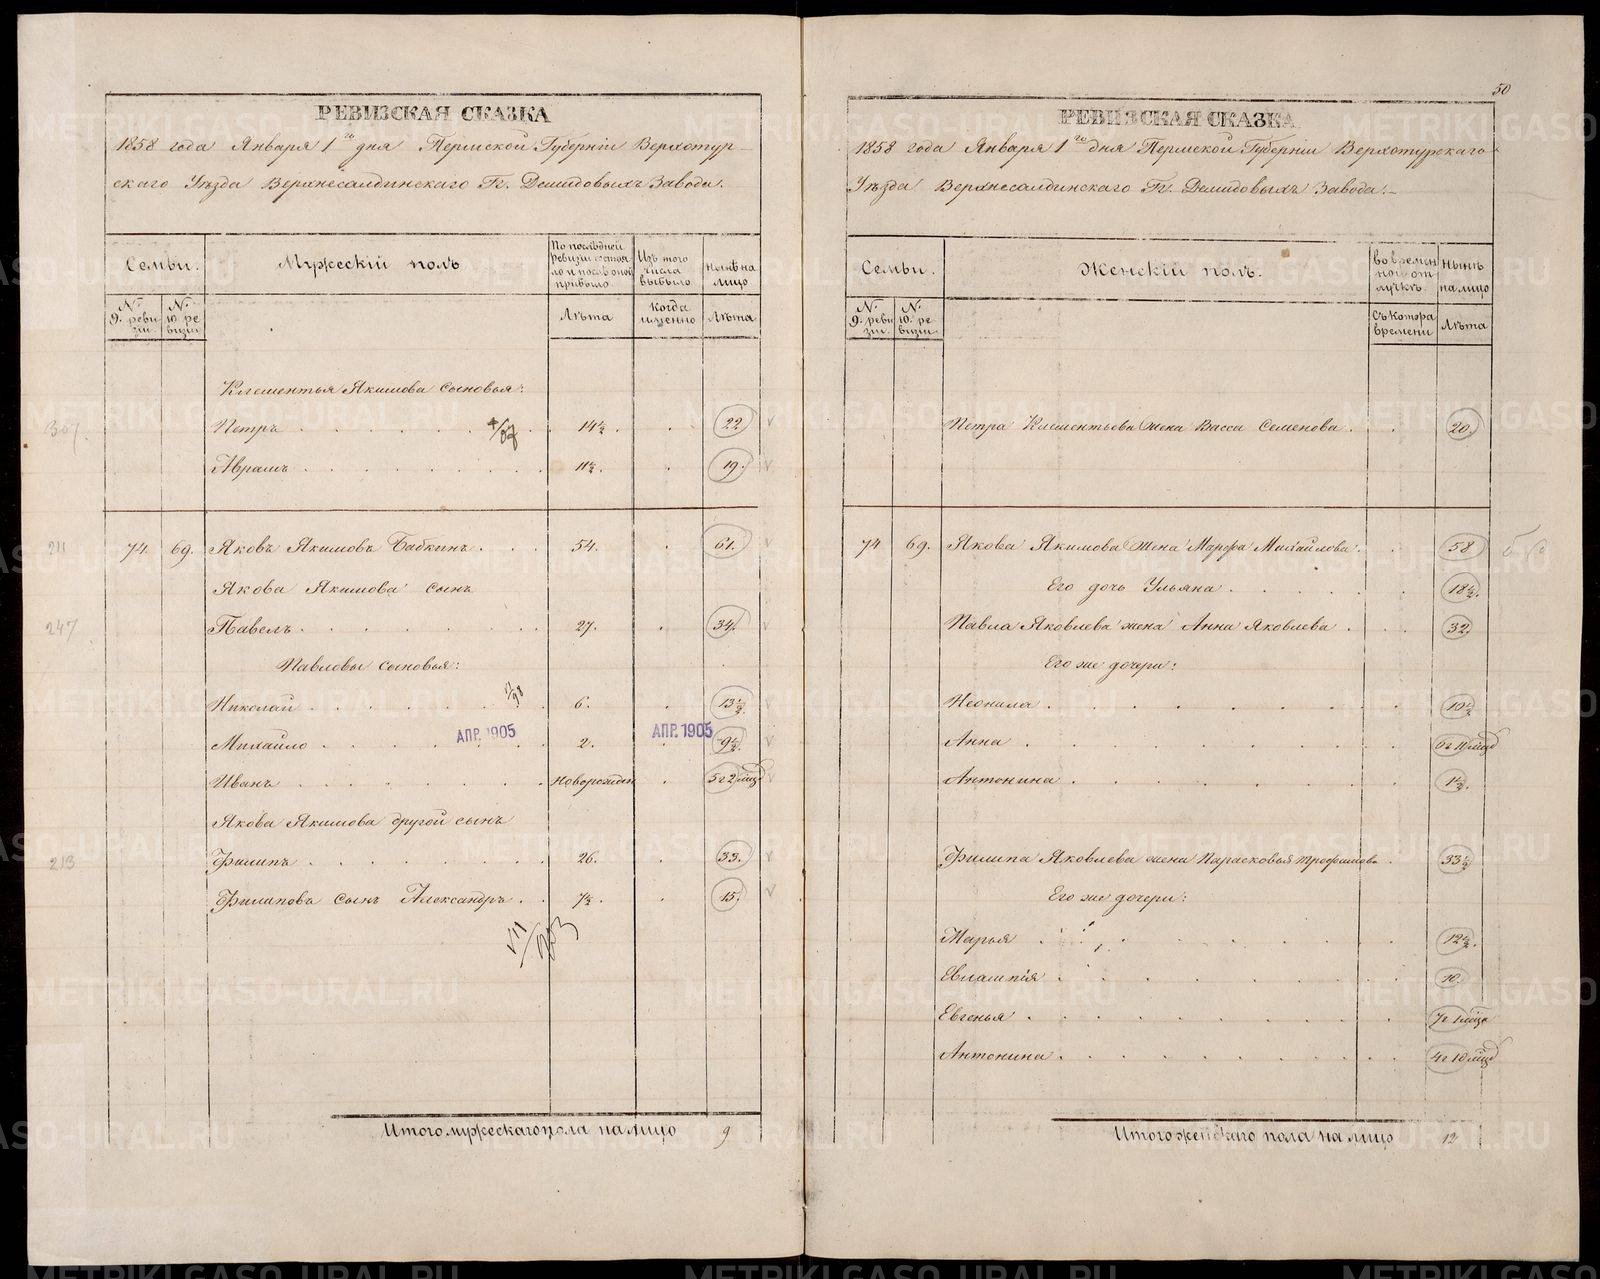 РЕВИЗСКАЯ СКАЗКА
1858 года Января 1го дня Пермской Губерніи Верхотур-
скаго Уѣзда Верхнесалдинскаго Гг. Демидовыхъ Завода.
Семьи.
Мужескій полъ
По послѣдней ревизіи состояло и послѣ оной прибыло
Изъ того числа выбыло
Нынѣ на лицо
№ 9. ревизіи
№ 10. ревизіи
Лѣта
Когда именно
Лѣта
Клементья Якимова сыновья:
307.
Петръ 14½. 22
Аврамъ 11½. 19.
211 74. 69. Яковъ Якимовъ Бабкинъ 54. 61.
Якова Якимова сынъ
247 Павелъ 27. 34.
Павловы сыновья:
Николай 6. 13½.
Михайло АПР. 1905 2. АПР. 1905 9½.
Иванъ новорожден 5г 2 мѣц
Якова Якимова другой сынъ
213 Филипъ 26. 33.
Филиповъ сынъ Александръ 7½. 15.
VII/903
Итого мужескаго пола на лицо 9
50
РЕВИЗСКАЯ СКАЗКА
1858 года Января 1го дня Пермской Губерніи Верхотурскаго
Уѣзда Верхнесалдинскаго Гг. Демидовыхъ Завода.
Семьи.
Женскій полъ.
Во временной отлучкѣ
Нынѣ на лицо
№ 9. ревизіи
№ 10. ревизіи
Съ котора времени
Лѣта
Петра Клементьева жена Васса Семенова 20.
74 69. Якова Якимова жена Марфа Михайлова 58
Его дочь Ульяна 18½.
Павла Яковлева жена Анна Яковлева 32
Его же дочери:
Неонила 10½
Анна 6г 11 мѣц
Антонина 1½.
Филипа Яковлева жена Парасковья Трофимова 33½
Его же дочери:
Марья 12½.
Евлампія 10.
Евгенья 7г 1 мѣца
Антонина 4г 10 мѣц
Итого женскаго пола на лицо 12
METRIKI.GASO-URAL.RU